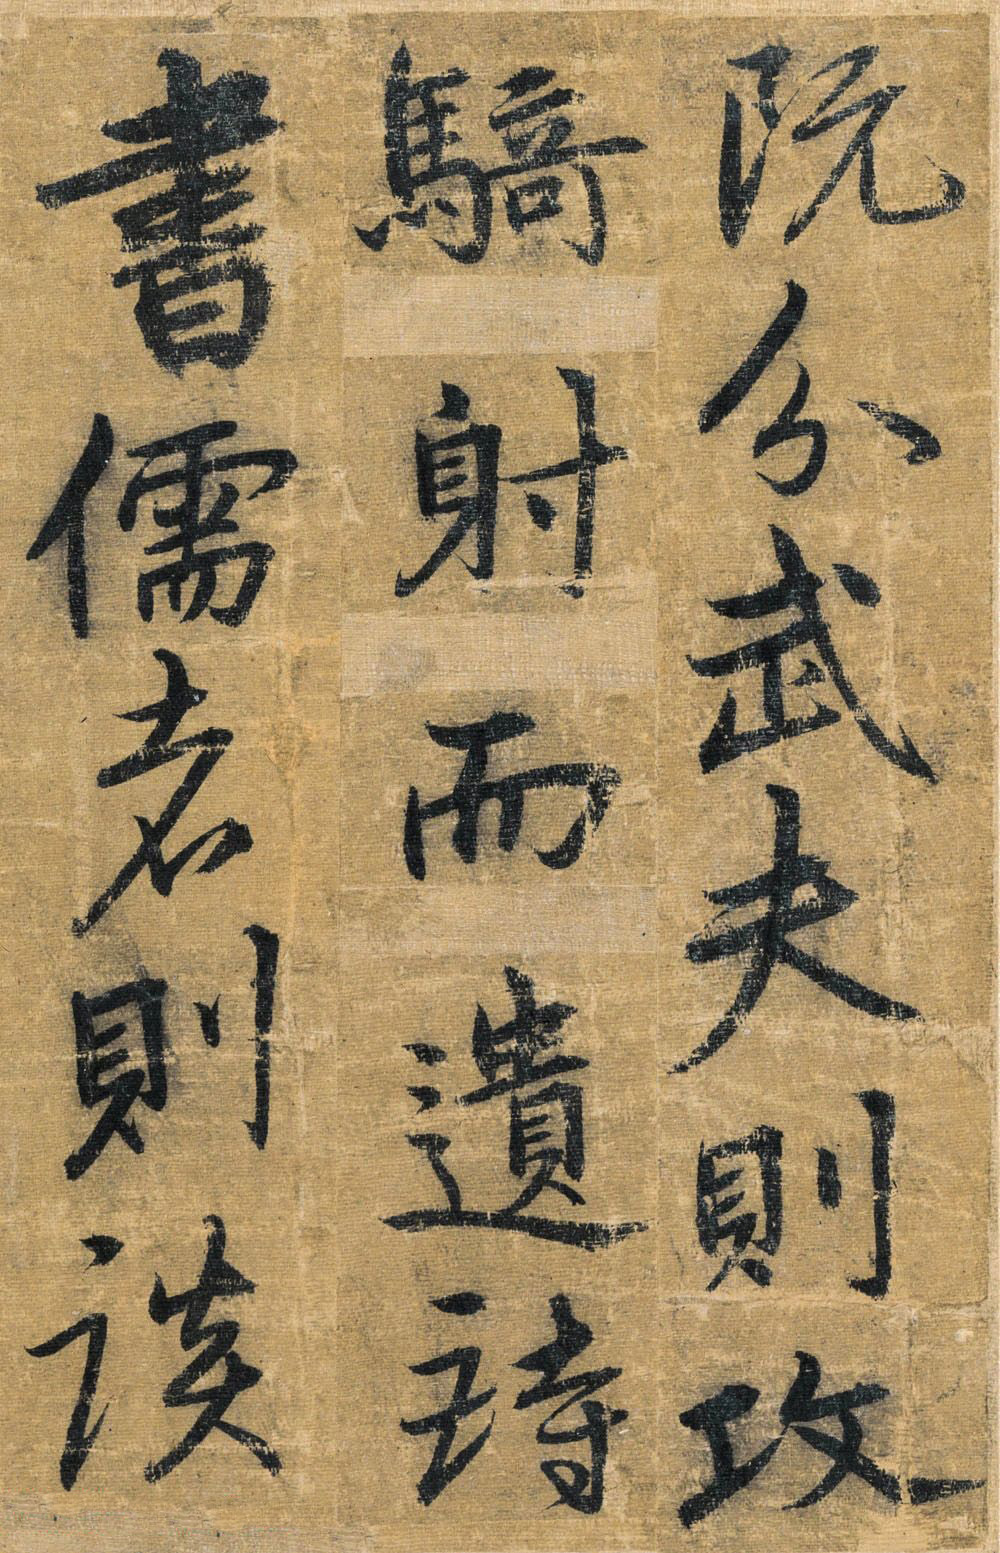 既分武夫則攻
騎射而遺詩
書儒者則談